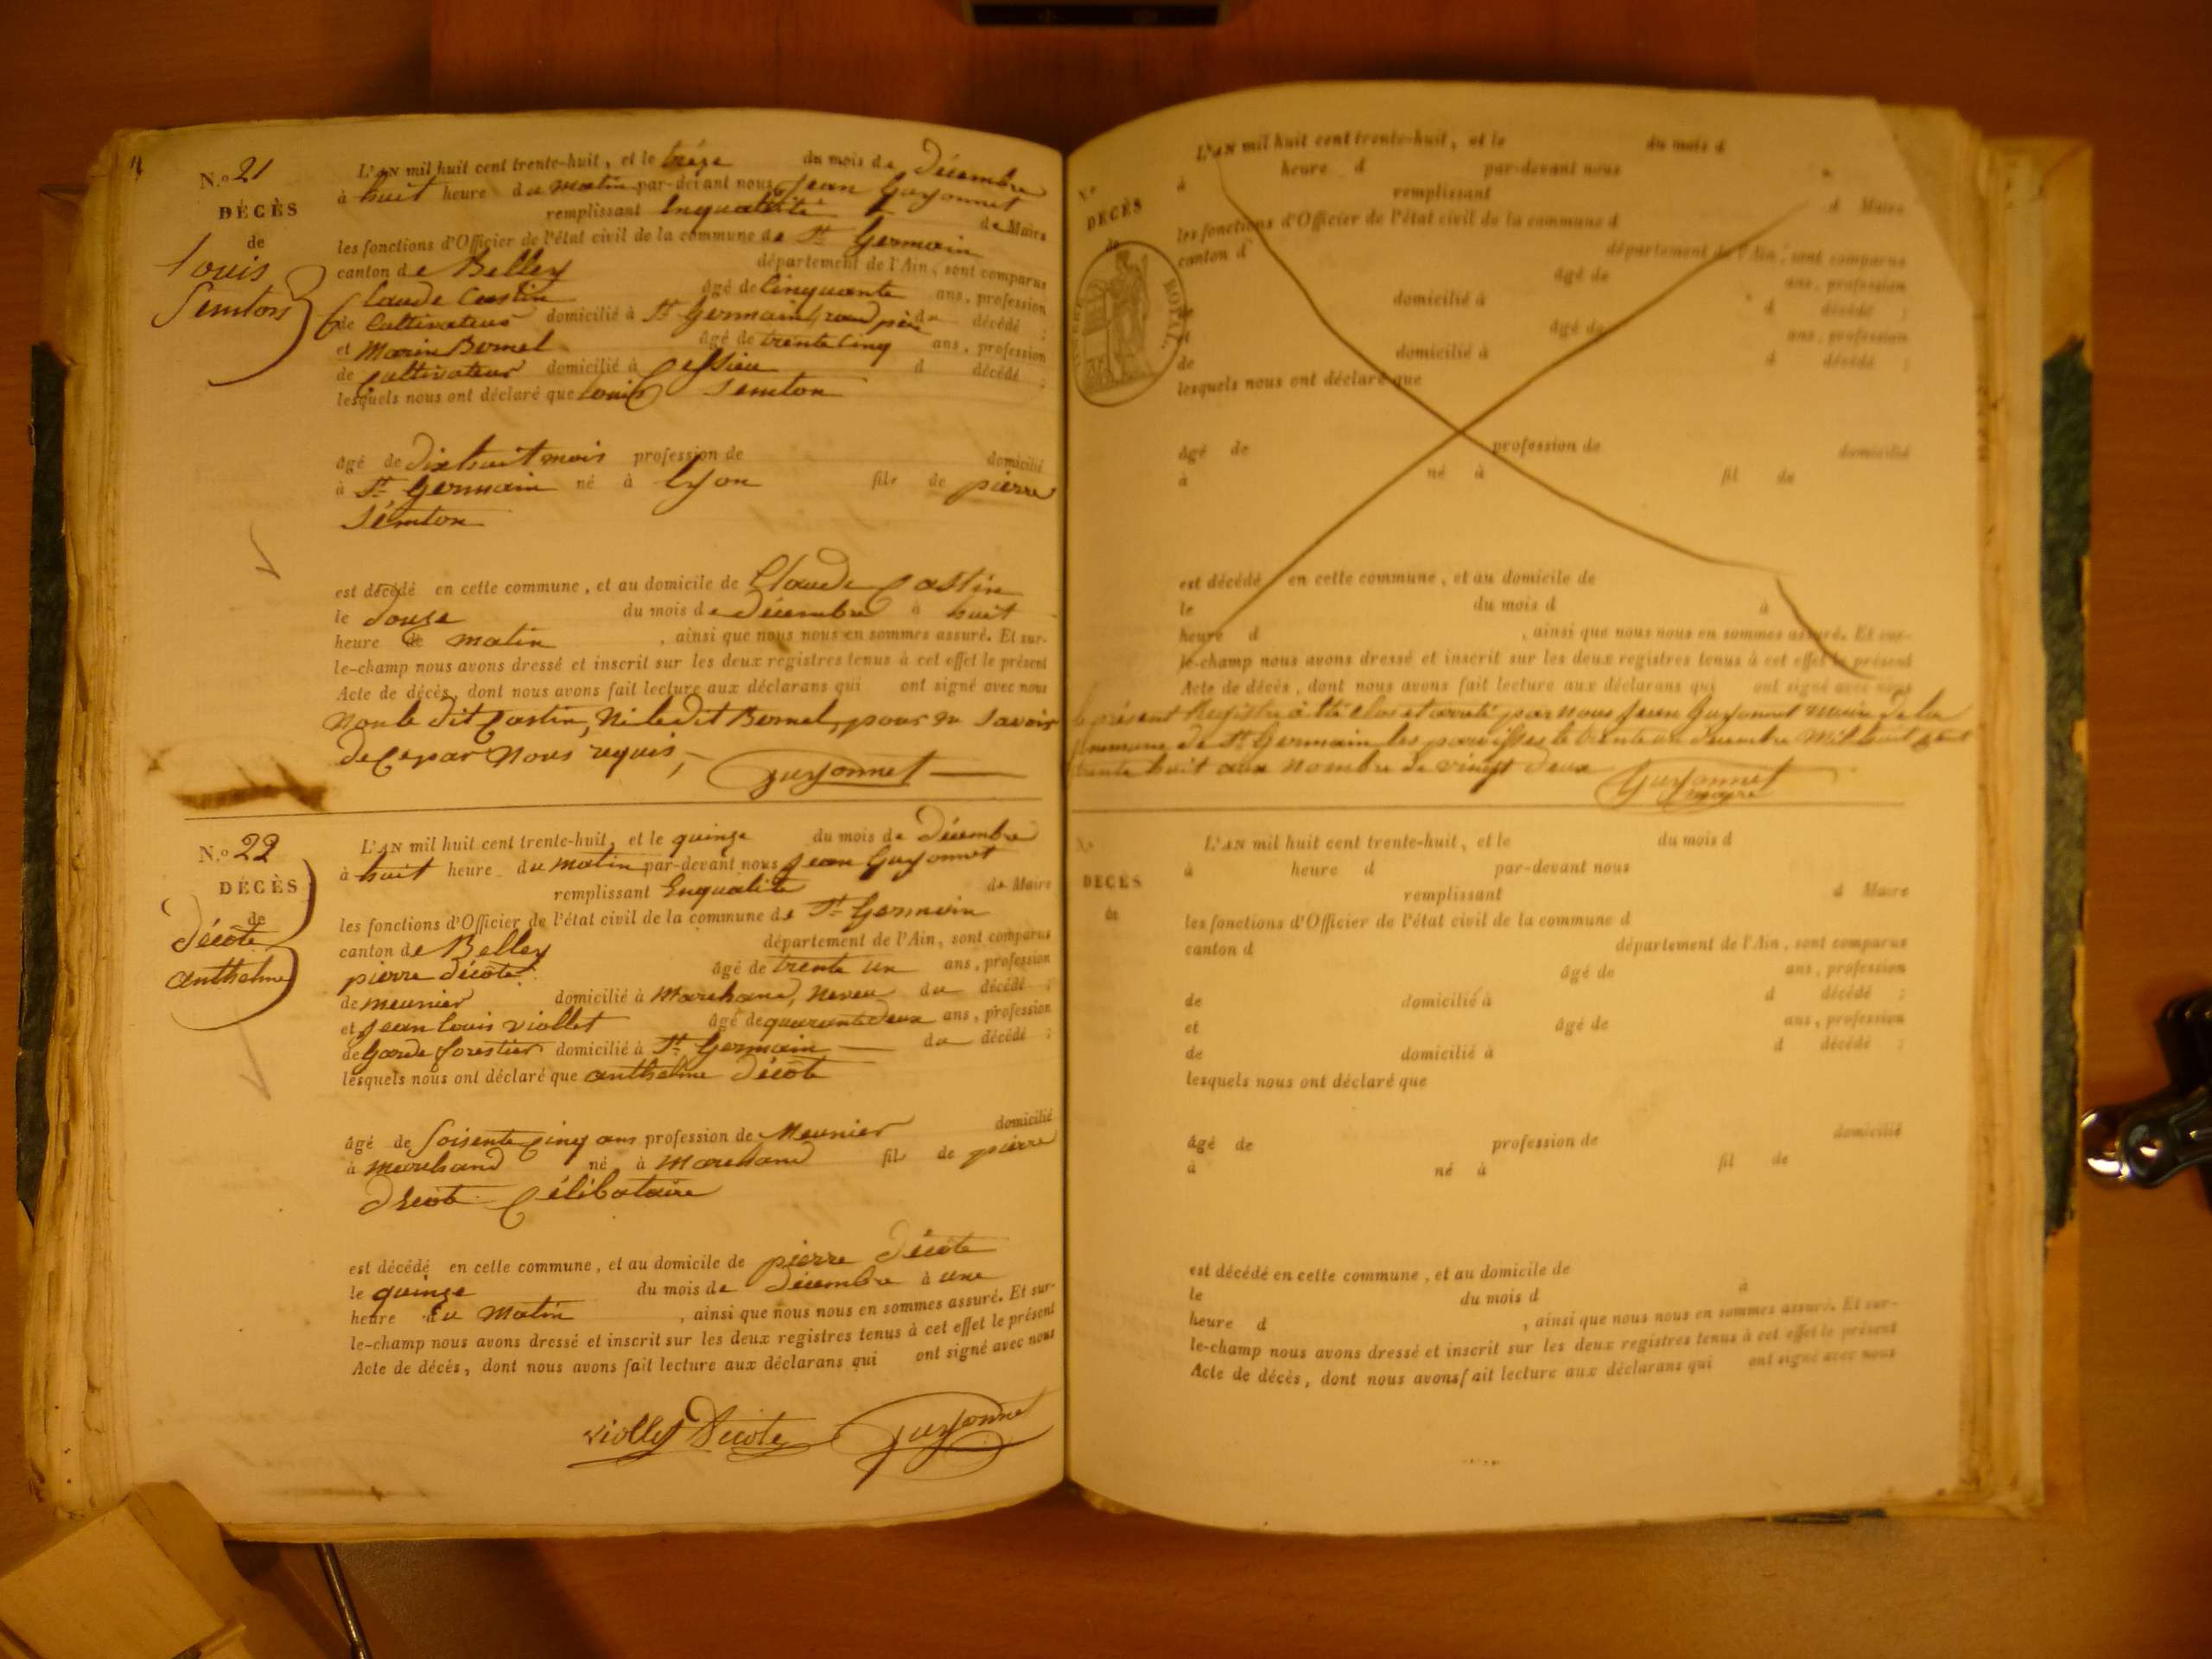 N.o 21
DÉCÈS
de
Louis
Semton
L'AN mil huit cent trente-huit, et le treze du mois de Décembre
à huit heure du matin par-devant nous Jean Guyonnet
remplissant Enqualité de Maire
les fonctions d'Officier de l'état civil de la commune de St Germain
canton de Belley département de l'Ain, sont comparus
Claude Castin âgé de Cinquante ans, profession
de Cultivateur domicilié à St Germain, du décédé ;
et Marin Bornel âgé de trente Cinq ans, profession
de Cultivateur domicilié à Cessieu d décédé ;
lesquels nous ont déclaré que Louis Semton
âgé de Dixhuit mois profession de domicilié
à St Germain né à Lyon fils de pierre
Semton
est décédé en cette commune, et au domicile de Claude Castin
le douze du mois de Décembre à huit
heure de matin , ainsi que nous nous en sommes assuré. Et sur-
le-champ nous avons dressé et inscrit sur les deux registres tenus à cet effet le présent
Acte de décès, dont nous avons fait lecture aux déclarans qui ont signé avec nous
Non le dit Castin, Ni le dit Bornel, pour ne savoir
de Ce par Nous requis,
Guyonnet
N.o 22
DÉCÈS
de
Décote
anthelme
L'AN mil huit cent trente-huit, et le quinze du mois de Décembre
à huit heure du matin par-devant nous Jean Guyonnet
remplissant Enqualité de Maire
les fonctions d'Officier de l'état civil de la commune de St Germain
canton de Belley département de l'Ain, sont comparus
pierre décote âgé de trente un ans, profession
de meunier domicilié à Marchand, neveu du décédé ;
et Jean Louis viollet âgé de quarante deux ans, profession
de Garde forestier domicilié à St Germain du décédé ;
lesquels nous ont déclaré que anthelme Décote
âgé de Soisente Cinq ans profession de Meunier domicilié
à Marchand né à Marchand fils de pierre
Décote Célibataire
est décédé en cette commune, et au domicile de pierre Décote
le quinze du mois de Décembre à une
heure du Matin , ainsi que nous nous en sommes assuré. Et sur-
le-champ nous avons dressé et inscrit sur les deux registres tenus à cet effet le présent
Acte de décès, dont nous avons fait lecture aux déclarans qui ont signé avec nous
viollet Décote Guyonnet
N.o
DÉCÈS
de
ROYAL.
L'AN mil huit cent trente-huit, et le du mois d
à heure d par-devant nous
remplissant d Maire
les fonctions d'Officier de l'état civil de la commune d
canton d département de l'Ain, sont comparus
âgé de ans, profession
de domicilié à d décédé ;
et âgé de ans, profession
de domicilié à d décédé ;
lesquels nous ont déclaré que
âgé de profession de domicilié
à né à fil de
est décédé en cette commune, et au domicile de
le du mois d à
heure d , ainsi que nous nous en sommes assuré. Et sur-
le-champ nous avons dressé et inscrit sur les deux registres tenus à cet effet le présent
Acte de décès, dont nous avons fait lecture aux déclarans qui ont signé avec nous
le présent Registre à été clos et arreté par nous Jean Guyonnet maire de la
Commune de St Germain les paroisses le trente un décembre Mil huit Cent
trente huit aux Nombre de vingt deux
Guyonnet
mayre
N.o
DÉCÈS
de
L'AN mil huit cent trente-huit, et le du mois d
à heure d par-devant nous
remplissant d Maire
les fonctions d'Officier de l'état civil de la commune d
canton d département de l'Ain, sont comparus
âgé de ans, profession
de domicilié à d décédé ;
et âgé de ans, profession
de domicilié à d décédé ;
lesquels nous ont déclaré que
âgé de profession de domicilié
à né à fil de
est décédé en cette commune, et au domicile de
le du mois d à
heure d , ainsi que nous nous en sommes assuré. Et sur-
le-champ nous avons dressé et inscrit sur les deux registres tenus à cet effet le présent
Acte de décès, dont nous avons fait lecture aux déclarans qui ont signé avec nous